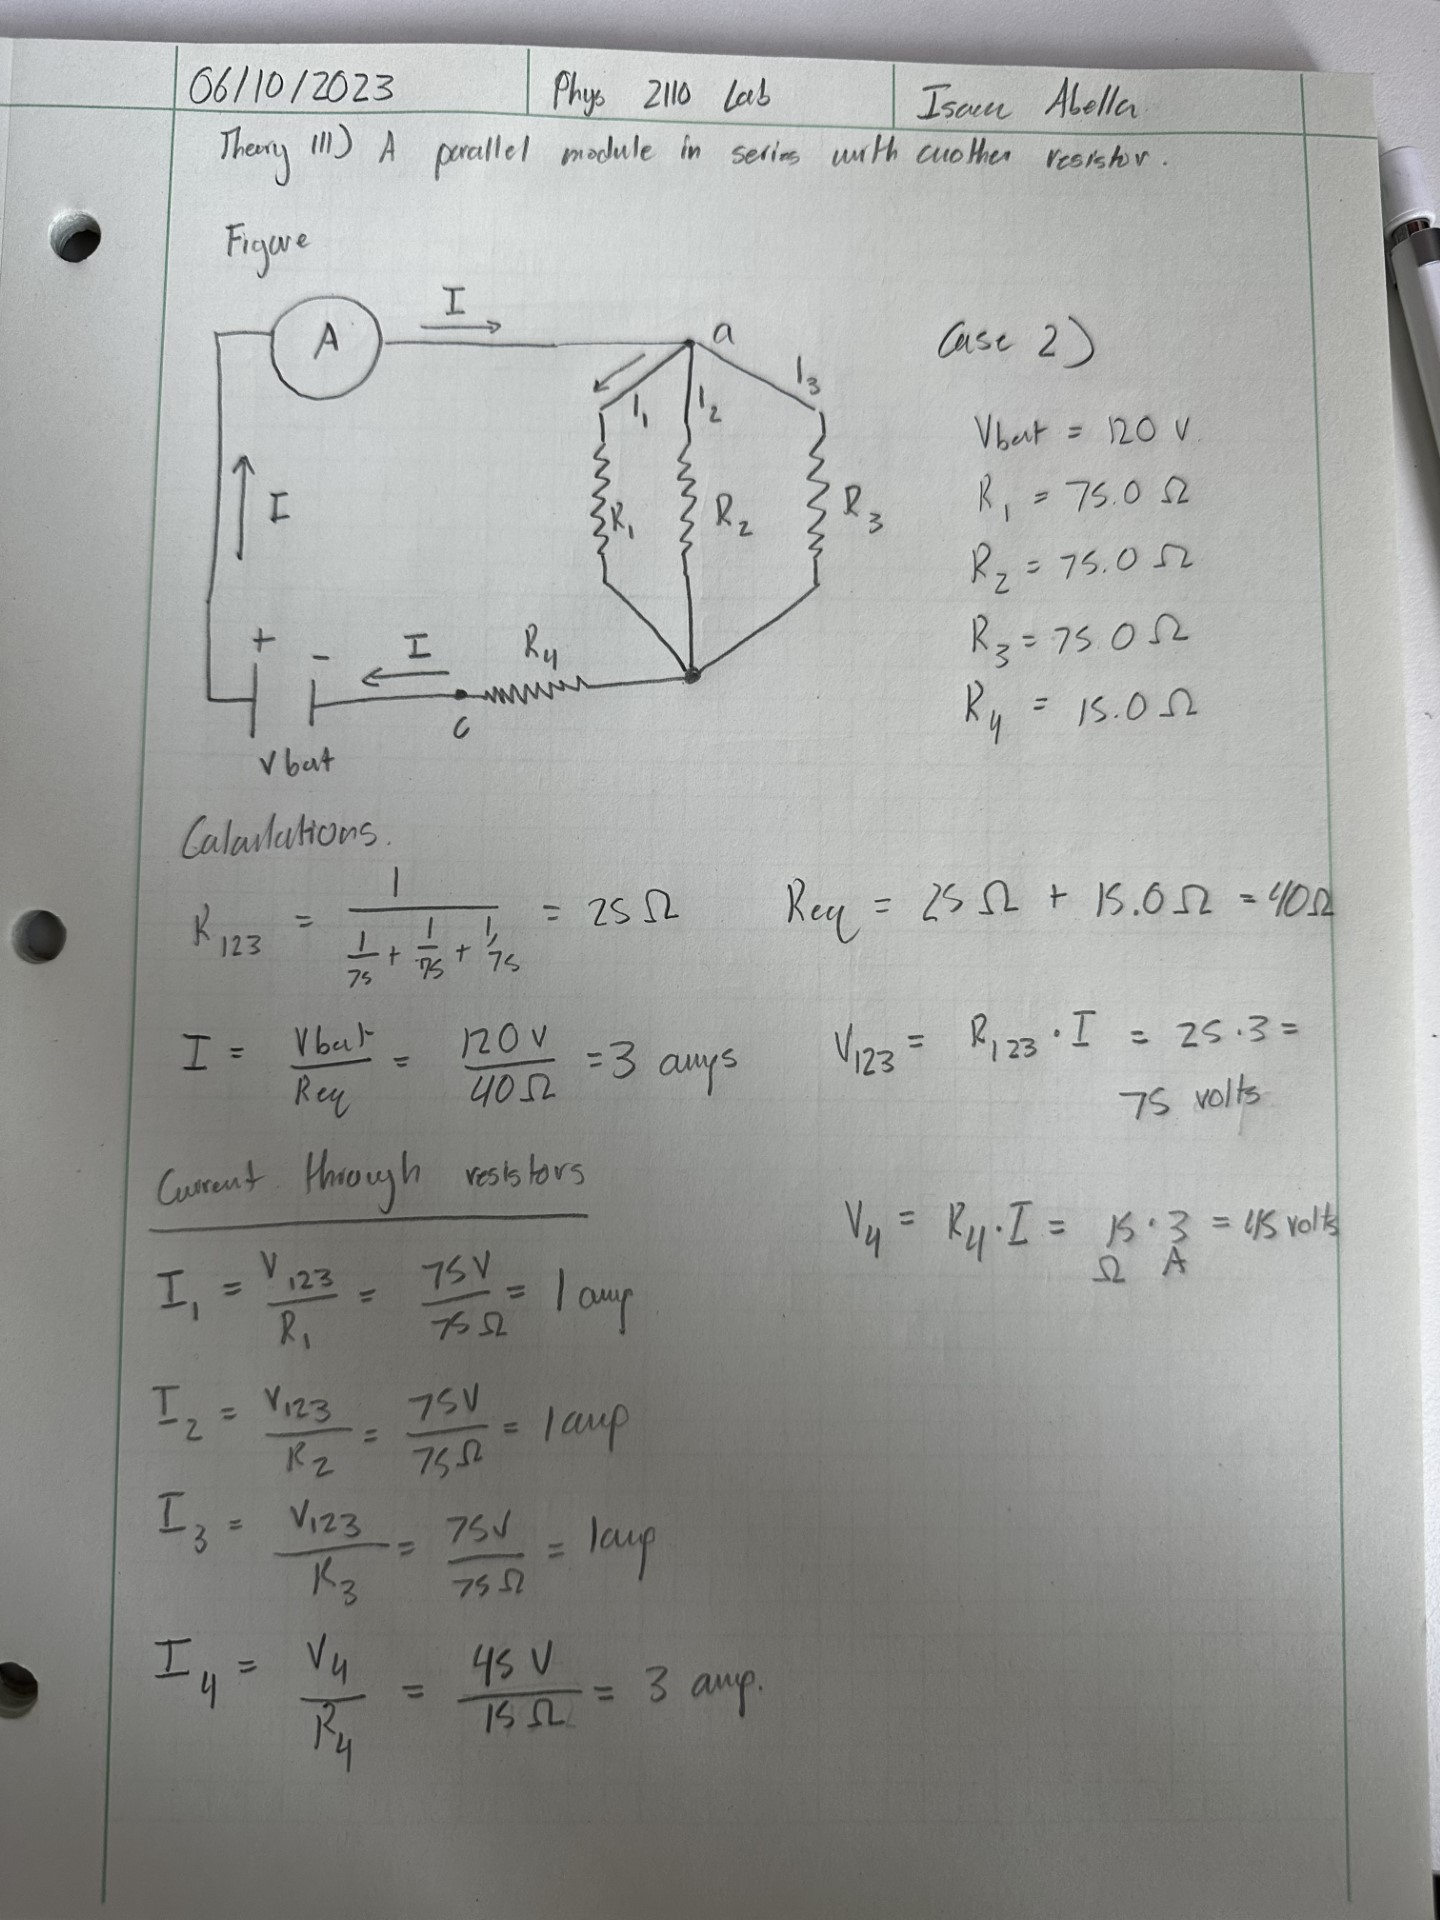 06/10/2023 Phys 2110 Lab Isaac Abella
Theory III) A parallel module in series with another resistor.
Figure
A
I
a
I1
I2
I3
Case 2)
Vbat = 120 V
R1 = 75.0 Ω
R2 = 75.0 Ω
R3 = 75.0 Ω
R4 = 15.0 Ω
I
R1
R2
R3
+ -
I
R4
c
Vbat
Calculations.
R123 = 1/(1/75 + 1/75 + 1/75) = 25 Ω Req = 25 Ω + 15.0 Ω = 40 Ω
I = Vbat/Req = 120 V/40 Ω = 3 amps V123 = R123 · I = 25 · 3 =
75 volts
Current through resistors
V4 = R4 · I = 15 · 3 = 45 volts
Ω A
I1 = V123/R1 = 75V/75 Ω = 1 amp
I2 = V123/R2 = 75V/75 Ω = 1 amp
I3 = V123/R3 = 75V/75 Ω = 1 amp
I4 = V4/R4 = 45 V/15 Ω = 3 amp.